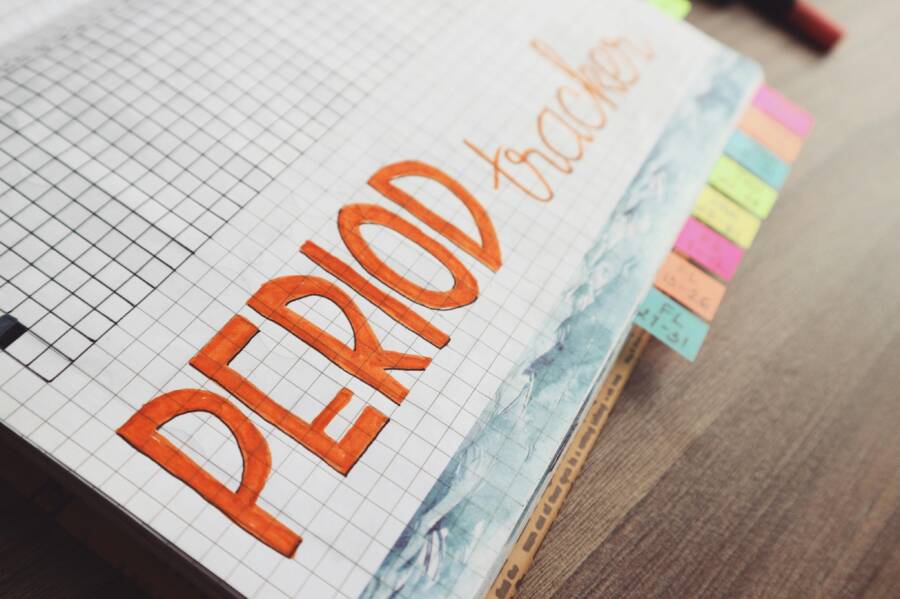 PERIOD tracker
FL
27-31